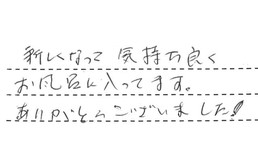 新しくなって 気持ち良く
お風呂に入ってます。
ありがとうございました!